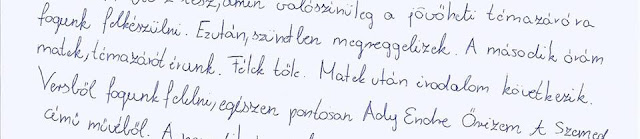 amin valószínűleg a jövőheti témazáróra
fogunk felkészülni. Ezután, szüntben megreggelizek. A második órám
matek, témazárót írunk. Félek tőle. Matek után irodalom következik.
Versből fogunk felelni, egészen pontosan Ady Endre Őrizem A Szemed
című művéből. A